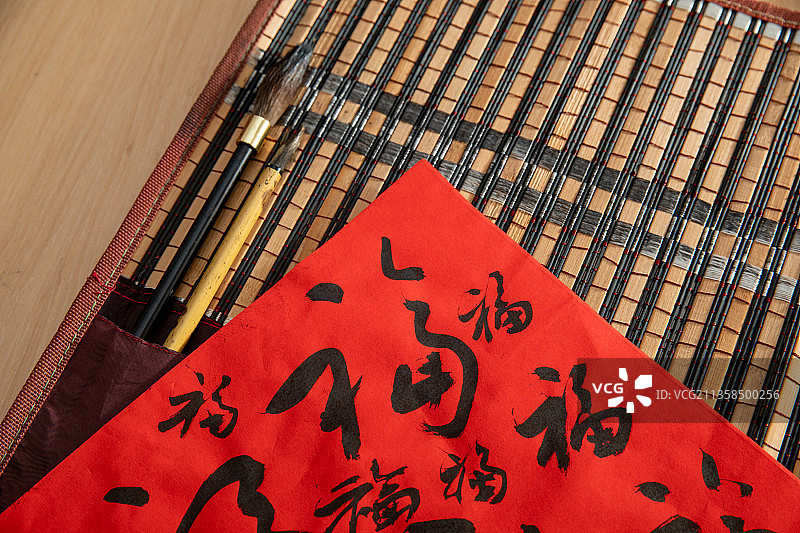 福
福
福
福
福
福
VCG VCG211358500256